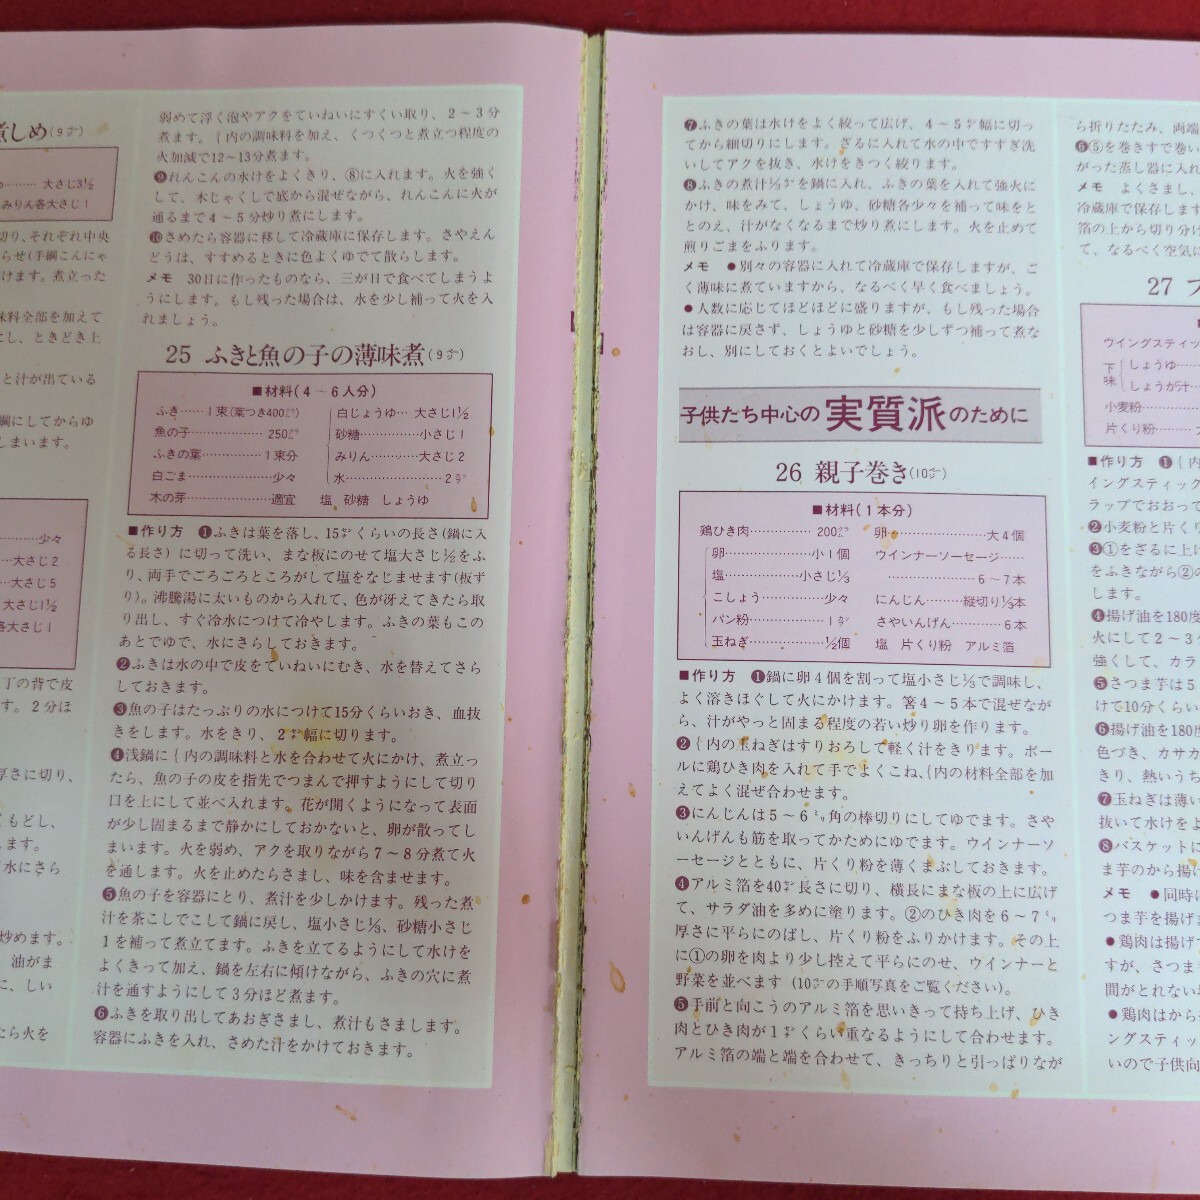 煮しめ(9㌻)
大さじ3½
みりん各大さじ1
切り、それぞれ中央
らせ(手綱こんにゃ
けます。煮立った
味料全部を加えて
にし、ときどき上
と汁が出ている
綱にしてからゆ
しまいます。
少々
大さじ2
大さじ5
大さじ1½
各大さじ1
丁の背で皮
す。2分ほ
厚さに切り、
もどし、
ます。
水にさら
炒めます。
油がま
に、しい
たら火を
弱めて浮く泡やアクをていねいにすくい取り、2～3分
煮ます。{内の調味料を加え、くつくつと煮立つ程度の
火加減で12～13分煮ます。
❾れんこんの水けをよくきり、⑧に入れます。火を強く
して、木じゃくしで底から混ぜながら、れんこんに火が
通るまで4～5分炒り煮にします。
❿さめたら容器に移して冷蔵庫に保存します。さやえん
どうは、すすめるときに色よくゆでて散らします。
メモ 30日に作ったものなら、三が日で食べてしまうよ
うにします。もし残った場合は、水を少し補って火を入
れましょう。
25 ふきと魚の子の薄味煮(9㌻)
■材料(4～6人分)
ふき……1束(葉つき400㌘)
魚の子………………250㌘
ふきの葉……………1束分
白ごま…………………少々
木の芽…………………適宜
白じょうゆ…大さじ1½
砂糖……………小さじ1
みりん…………大さじ2
水……………………2㌍
塩 砂糖 しょうゆ
■作り方 ❶ふきは葉を落し、15㌢くらいの長さ(鍋に入
る長さ)に切って洗い、まな板にのせて塩大さじ½をふ
り、両手でごろごろところがして塩をなじませます(板ず
り)。沸騰湯に太いものから入れて、色が冴えてきたら取
り出し、すぐ冷水につけて冷やします。ふきの葉もこの
あとでゆで、水にさらしておきます。
❷ふきは水の中で皮をていねいにむき、水を替えてさら
しておきます。
❸魚の子はたっぷりの水につけて15分くらいおき、血抜
きをします。水をきり、2㌢幅に切ります。
❹浅鍋に{内の調味料と水を合わせて火にかけ、煮立っ
たら、魚の子の皮を指先でつまんで押すようにして切り
口を上にして並べ入れます。花が開くようになって表面
が少し固まるまで静かにしておかないと、卵が散ってし
まいます。火を弱め、アクを取りながら7～8分煮て火
を通します。火を止めたらさまし、味を含ませます。
❺魚の子を容器にとり、煮汁を少しかけます。残った煮
汁を茶こしでこして鍋に戻し、塩小さじ⅓、砂糖小さじ
1を補って煮立てます。ふきを立てるようにして水けを
よくきって加え、鍋を左右に傾けながら、ふきの穴に煮
汁を通すようにして3分ほど煮ます。
❻ふきを取り出してあおぎさまし、煮汁もさまします。
容器にふきを入れ、さめた汁をかけておきます。
❼ふきの葉は水けをよく絞って広げ、4～5㌢幅に切っ
てから細切りにします。ざるに入れて水の中ですすぎ洗
いしてアクを抜き、水けをきつく絞ります。
❽ふきの煮汁⅓㌍を鍋に入れ、ふきの葉を入れて強火に
かけ、味をみて、しょうゆ、砂糖各少々を補って味をと
とのえ、汁がなくなるまで炒り煮にします。火を止めて
煎りごまをふります。
メモ ●別々の容器に入れて冷蔵庫で保存しますが、ご
く薄味に煮ていますから、なるべく早く食べましょう。
●人数に応じてほどほどに盛りますが、もし残った場合
は容器に戻さず、しょうゆと砂糖を少しずつ補って煮な
おし、別にしておくとよいでしょう。
子供たち中心の実質派のために
26 親子巻き(10㌻)
■材料(1本分)
鶏ひき肉……………200㌘
卵………………小1個
塩……………小さじ⅓
こしょう…………少々
パン粉……………1㌍
玉ねぎ……………½個
卵……………………大4個
ウインナーソーセージ……
……………………6～7本
にんじん………縦切り½本
さやいんげん…………6本
塩 片くり粉 アルミ箔
■作り方 ❶鍋に卵4個を割って塩小さじ⅓で調味し、
よく溶きほぐして火にかけます。箸4～5本で混ぜなが
ら、汁がやっと固まる程度の若い炒り卵を作ります。
❷{内の玉ねぎはすりおろして軽く汁をきります。ボー
ルに鶏ひき肉を入れて手でよくこね、{内の材料全部を加
えてよく混ぜ合わせます。
❸にんじんは5～6㍉角の棒切りにしてゆでます。さや
いんげんも筋を取ってかためにゆでます。ウインナーソ
ーセージとともに、片くり粉を薄くまぶしておきます。
❹アルミ箔を40㌢長さに切り、横長にまな板の上に広げ
て、サラダ油を多めに塗ります。②のひき肉を6～7㍉
厚さに平らにのばし、片くり粉をふりかけます。その上
に①の卵を肉より少し控えて平らにのせ、ウインナーと
野菜を並べます(10㌻の手順写真をご覧ください)。
❺手前と向こうのアルミ箔を思いきって持ち上げ、ひき
肉とひき肉が1㌢くらい重なるようにして合わせます。
アルミ箔の端と端を合わせて、きっちりと引っぱりなが
ら折りたたみ、両端
❻⑤を巻きすで巻い
がった蒸し器に入れ
メモ よくさまし、
冷蔵庫で保存します
箔の上から切り分け
て、なるべく空気に
27 フ
ウイングスティッ
下味
しょうゆ
しょうが汁
小麦粉
片くり粉
■作り方 ❶{内
イングスティック
ラップでおおって
❷小麦粉と片くり
❸①をざるに上げ
をふきながら②の
します。
❹揚げ油を180度
火にして2～3
強くして、カラ
❺さつま芋は5
けで10分くらい
❻揚げ油を180度
色づき、カサカ
きり、熱いうち
❼玉ねぎは薄い
抜いて水けをよ
❽バスケットに
ま芋のから揚げ
メモ ●同時に
つま芋を揚げま
●鶏肉は揚げ
すが、さつま
間がとれない
●鶏肉はから
ングスティッ
いので子供向